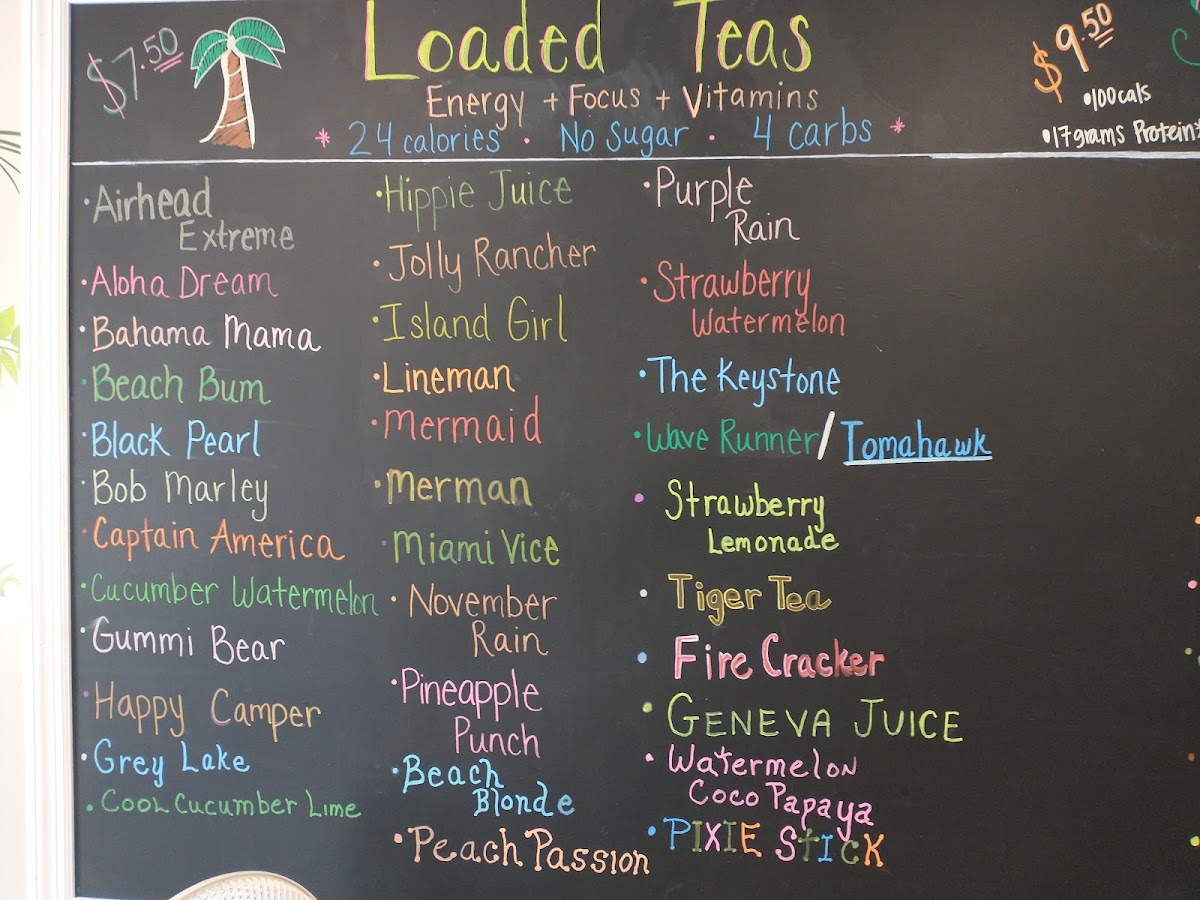 $7.50
Loaded Teas
Energy + Focus + Vitamins
* 24 calories · No Sugar · 4 carbs *
$9.50
•100cals
•17grams Protein
•Airhead
Extreme
•Aloha Dream
•Bahama Mama
•Beach Bum
•Black Pearl
•Bob Marley
•Captain America
•Cucumber Watermelon
•Gummi Bear
•Happy Camper
•Grey Lake
•Cool Cucumber Lime
•Hippie Juice
•Jolly Rancher
•Island Girl
•Lineman
•Mermaid
•Merman
•Miami Vice
•November
Rain
•Pineapple
Punch
•Beach
Blonde
•Peach Passion
•Purple
Rain
•Strawberry
Watermelon
•The Keystone
•Wave Runner/Tomahawk
•Strawberry
Lemonade
•Tiger Tea
•Fire Cracker
•GENEVA JUICE
•Watermelon
Coco Papaya
•PIXIE StIcK